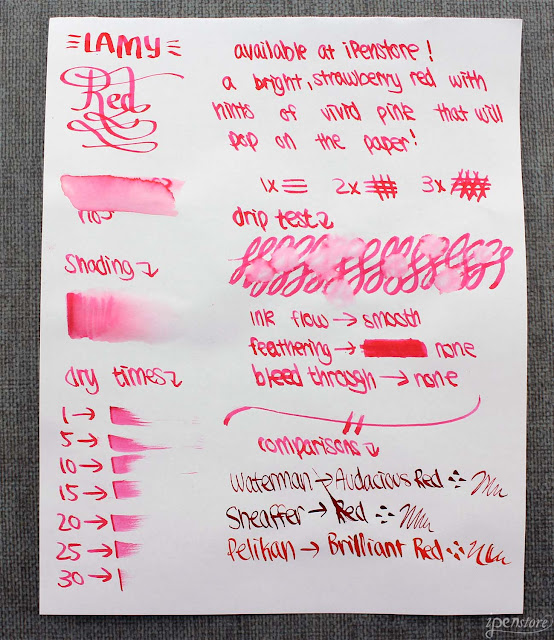 LAMY
Red
available at iPenstore!
a bright, strawberry red with
hints of vivid pink that will
pop on the paper!
1x 2x 3x
drip test
Shading
ink flow → smooth
feathering → none
bleed through → none
dry times
1 →
5 →
10 →
15 →
20 →
25 →
30 →
comparisons
Waterman → Audacious Red
Sheaffer → Red
Pelikan → Brilliant Red
ipenstore